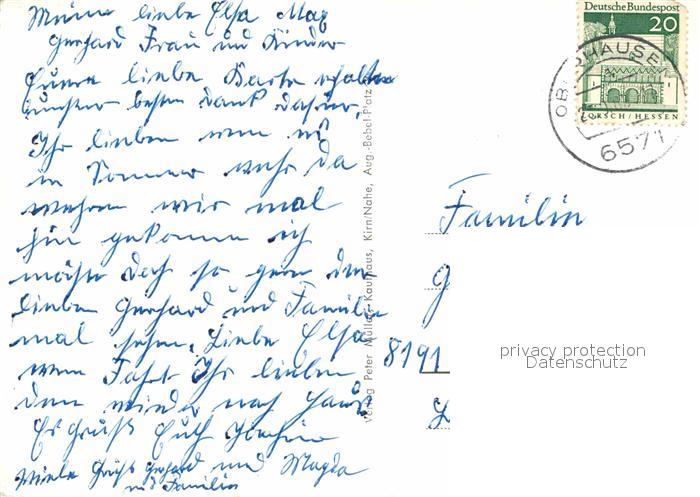 Meine liebe Elsa Max
Gerhard Frau und Kinder
Eure liebe Karte erhalten
besten Dank dafür,
Ihr lieben wenn
im Sommer mehr da
wir mal
hin gekommen ich
möchte doch so gern den
lieben Gerhard und Familie
mal sehen, Liebe Elsa
wenn Fahrt Ihr lieben
denn wieder nach Haus
Es grüßt Euch
Viele Grüße Gerhard und Magda
und Familie
Verlag Peter Müller, Kaufhaus, Kirn/Nahe, Aug.-Bebel-Platz
Deutsche Bundespost
20
LORSCH/HESSEN
OBERHAUSEN
6571
Familie
G
8191
privacy protection
Datenschutz